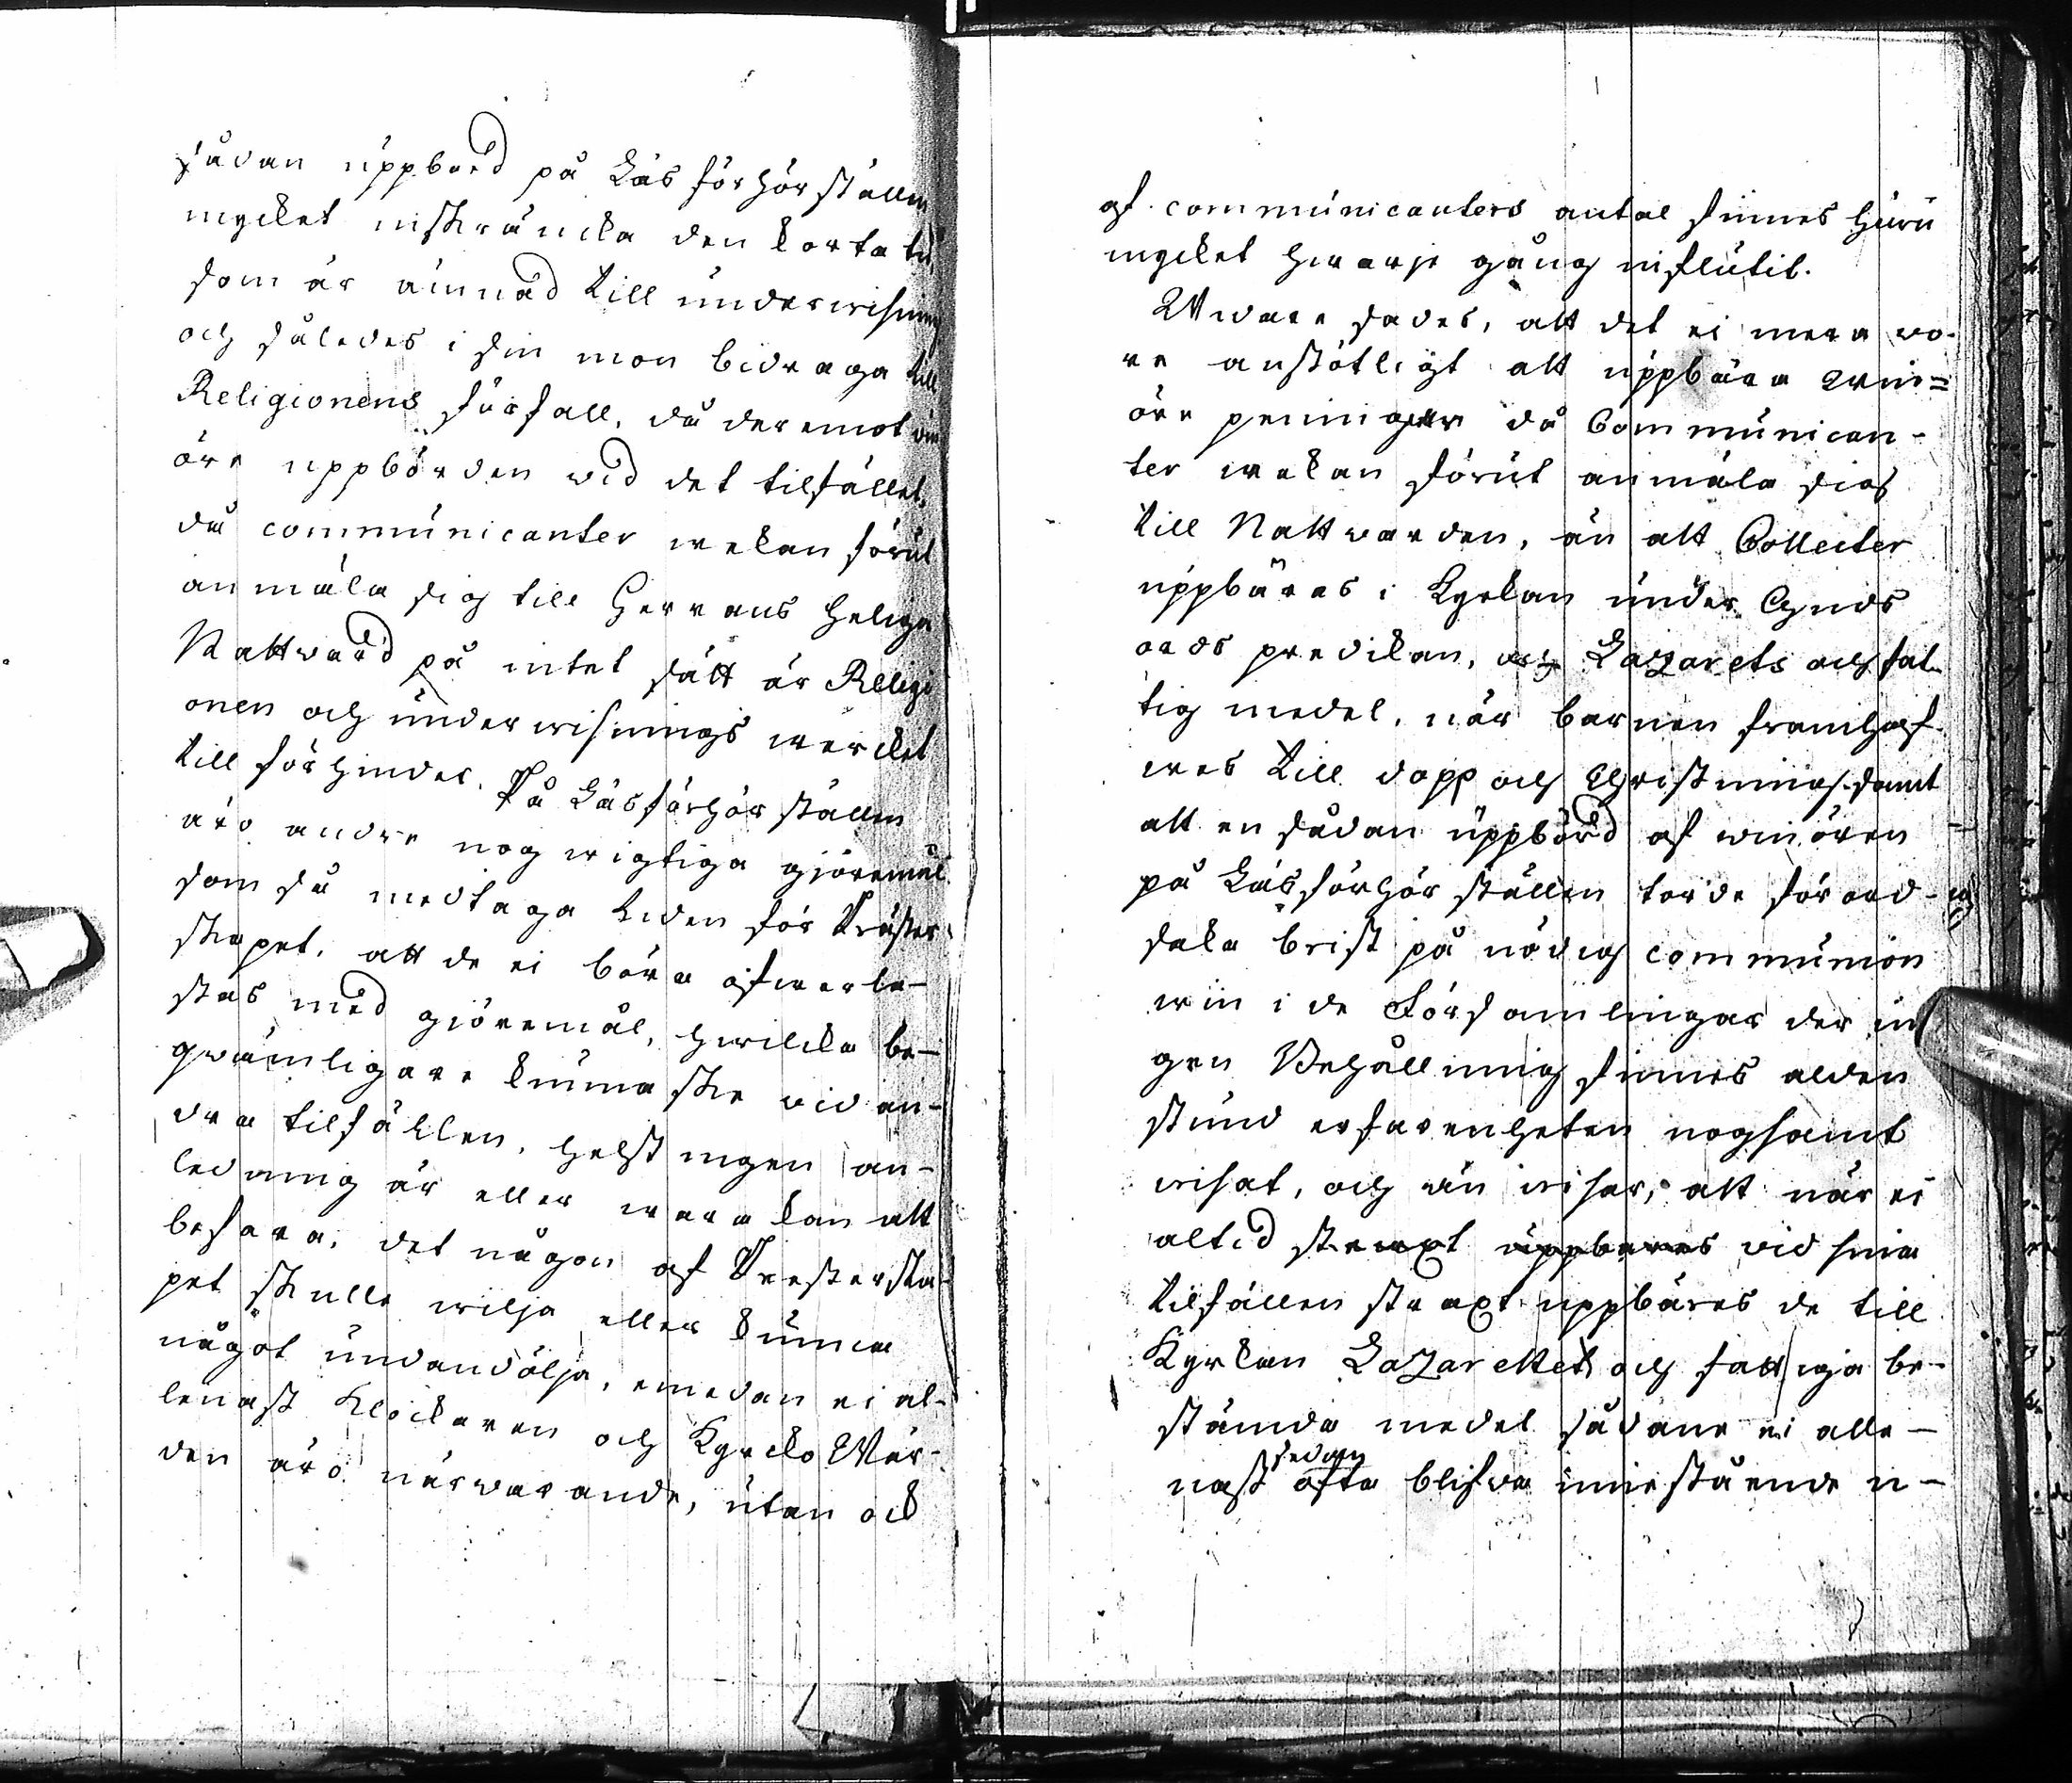 sådan uppbörd på Läsförhör ställen
mycket inskräncka den korta tid,
som är ämnad till underwisning
och således i sin mon bidraga till
Religionens förfall, då deremot win
öre uppbörden wid det tilfället,
då communicanter wekan förut
anmäla sig till Herrans Heliga
Nattward på intet sätt är Religi
onen och underwisnings wercket
till förhinder. På Läsförhör ställen
äro andre nog wigtiga giöremål
som så medtaga tiden för Präster-
skapet, att de ei böra öfwerla-
stas med giöremål, hwilcka be-
qwämligare kunna ske vid an-
dra tilfällen, helst ingen an-
ledning är eller wara kan att
befara, det någon af Presterska-
pet skulle wilja eller kunna
något undandölja, emedan ei al-
lenast Klockaren och Kyrcko Wär-
den äro närwarande, utan ock
af communicanters antal finnes huru
mycket hwarje gång influtit.
Widare sades, att det ei mera wo-
re anstötligt att uppbära win=
öre penningar då Communican-
ter wekan förut anmäla sig
till Nattwarden, än att Collecter
uppbäras i Kyrkan under Guds
ords predikan, och Lazarets och fat-
tig medel, när barnen framhaf-
wes till dop och Christning, samt
att en sådan uppbörd af winören
på Läsförhör ställen torde förord-
saka brist på nödig communion
win i de Församlingar der in-
gen Behållning finnes alden
stund erfarenheten nogsamt
wisat, och än wisar, att när ei
altid straxt uppbäres vid sina
tilfällen straxt uppbäres de till
Kyrkan Lazarettet och fattiga be-
stämda medel sådane ei alle-
nast sedan ofta blifwa innestående u-